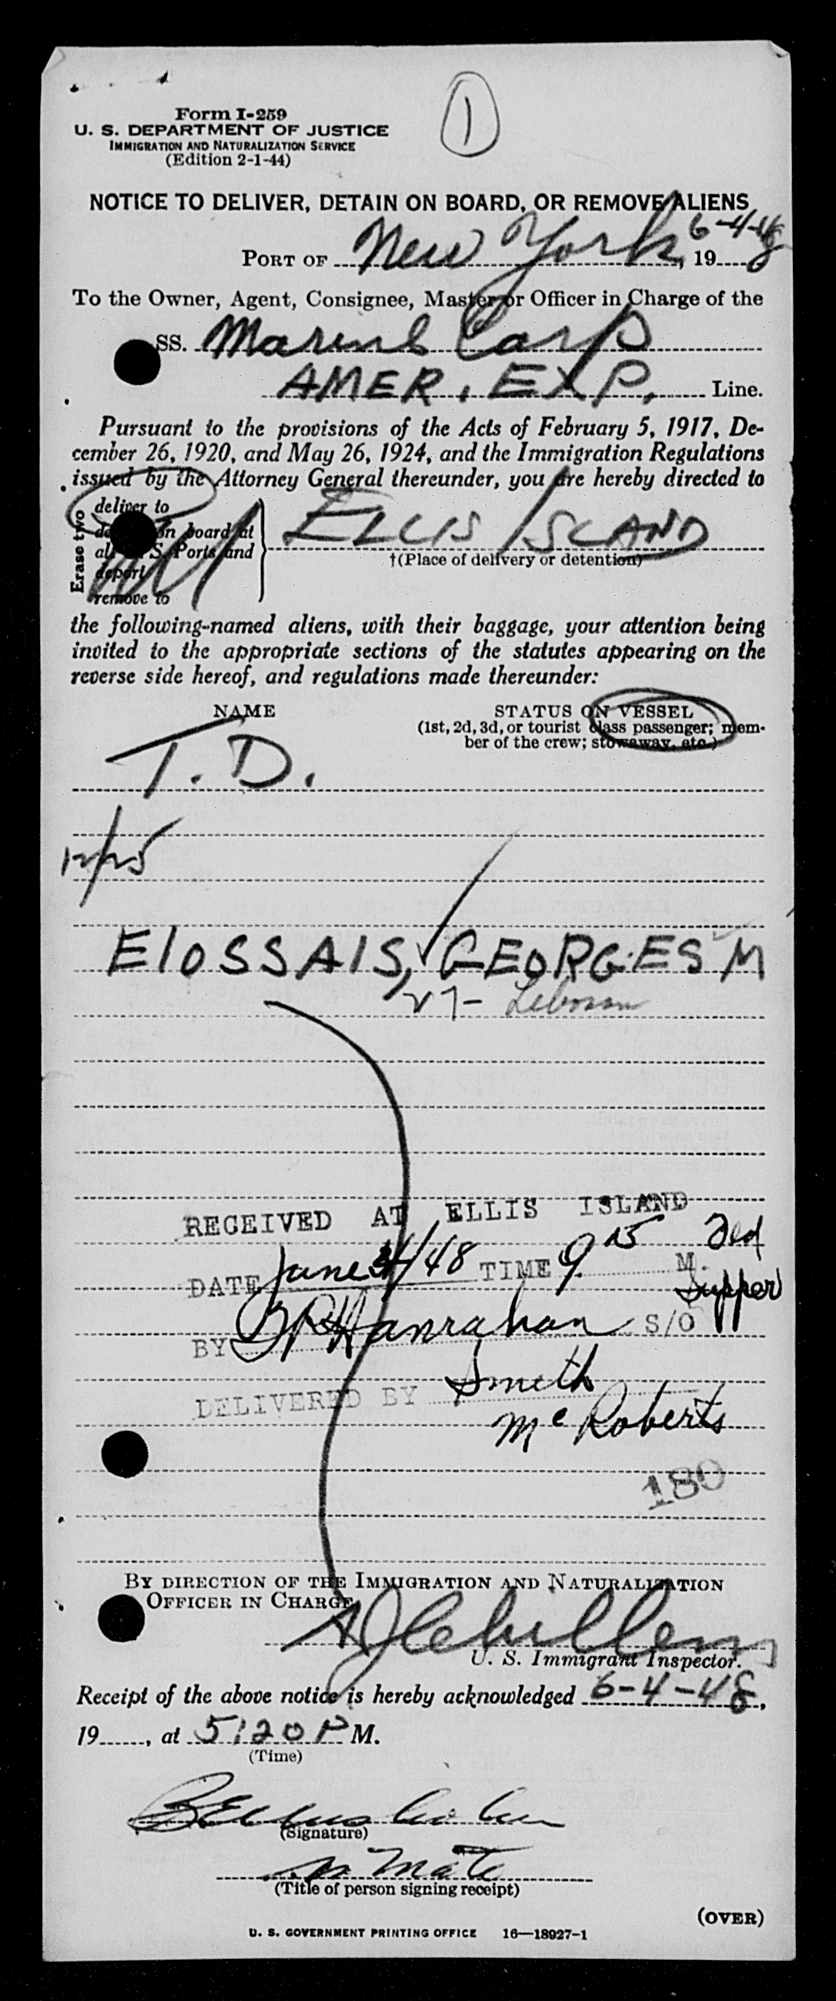 1
Form I-259
U. S. DEPARTMENT OF JUSTICE
IMMIGRATION AND NATURALIZATION SERVICE
(Edition 2-1-44)
NOTICE TO DELIVER, DETAIN ON BOARD, OR REMOVE ALIENS
PORT OF New York, 6-4-48 19
To the Owner, Agent, Consignee, Master or Officer in Charge of the
SS. Marine Carp
AMER. EXP. Line.
Pursuant to the provisions of the Acts of February 5, 1917, De-
cember 26, 1920, and May 26, 1924, and the Immigration Regulations
issued by the Attorney General thereunder, you are hereby directed to
Erase two
deliver to
on board at
S. Ports and
deport
remove to
ELLIS ISLAND
†(Place of delivery or detention)
the following-named aliens, with their baggage, your attention being
invited to the appropriate sections of the statutes appearing on the
reverse side hereof, and regulations made thereunder:
NAME STATUS ON VESSEL
(1st, 2d, 3d, or tourist class passenger; mem-
ber of the crew; stowaway, etc.)
T. D.
12/25
ElOSSAIS, GEORGES M
27-
RECEIVED AT ELLIS ISLAND
DATE June 4/48 TIME 9 15 M.
Supper
BY Hanrahan S/O
DELIVERED BY Smith
McRoberts
180
BY DIRECTION OF THE IMMIGRATION AND NATURALIZATION
OFFICER IN CHARGE
U. S. Immigrant Inspector.
Receipt of the above notice is hereby acknowledged 6-4-48,
19, at 5:20 P M.
(Time)
(Signature)
Mate
(Title of person signing receipt)
(OVER)
U. S. GOVERNMENT PRINTING OFFICE 16—18927-1